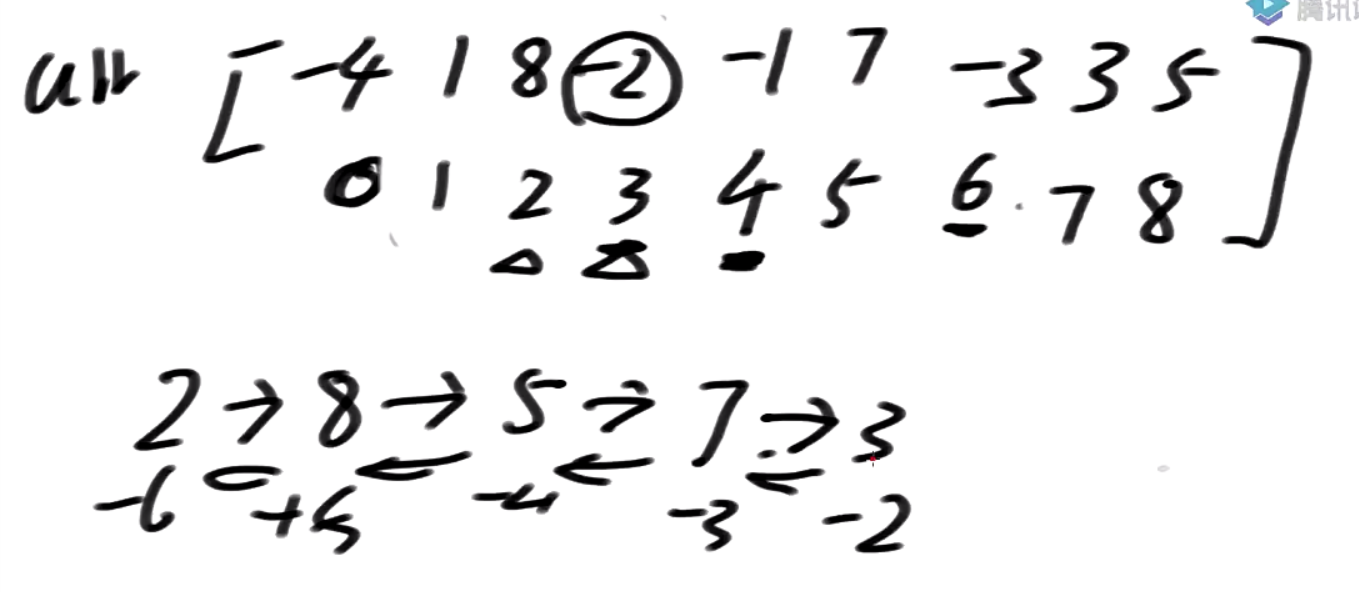 腾讯
arr [ -4 1 8 -2 -1 7 -3 3 5 ]
0 1 2 3 4 5 6 7 8
2 → 8 → 5 → 7 → 3
-6 +5 -4 -3 -2